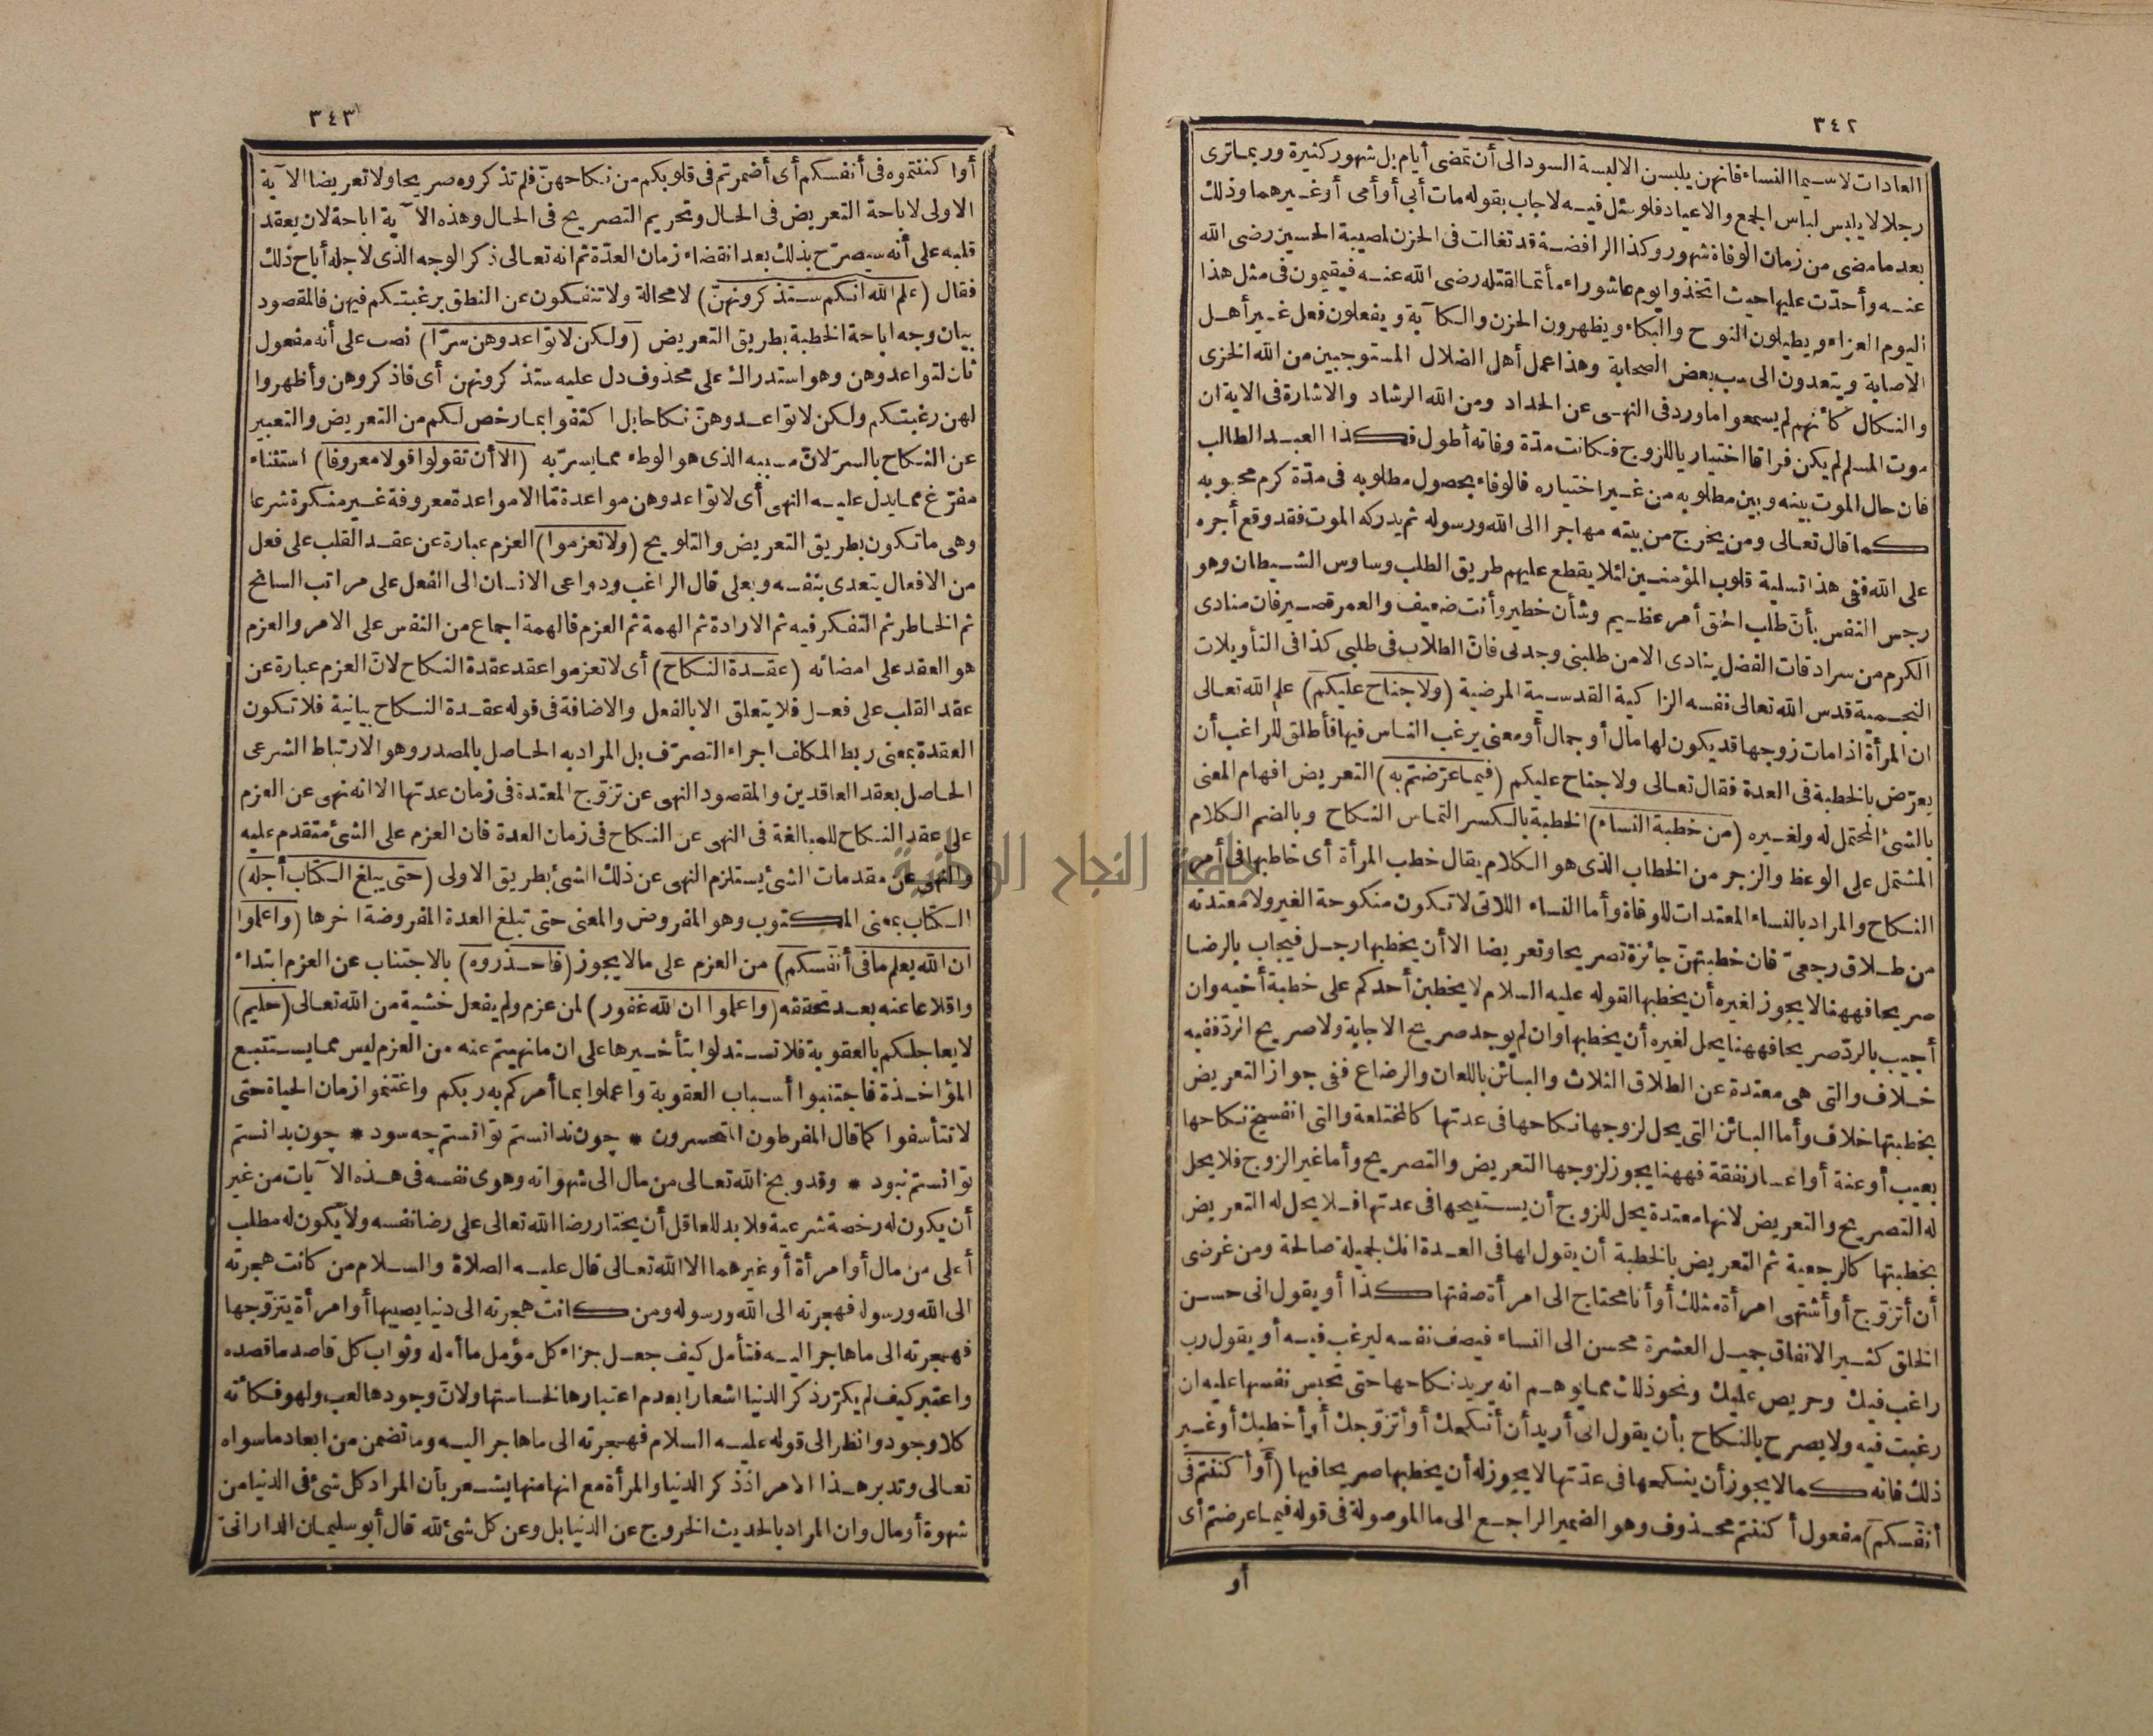 ٣٤٢
العادات لا سيما النساء فانهن يلبسن الالبسة السود الى أن تمضى أيام بل شهور كثيرة وربما ترى
رجلا لا يلبس لباس الجمع والاعياد فلو سئل فيه لاجاب بقوله مات أبى أو أمى أو غيرهما وذلك
بعد ما مضى من زمان الوفاة شهور وكذا الرافضة قد تغالت فى الحزن لمصيبة الحسين رضى الله
عنه وأحدّت عليها حيث اتخذوا يوم عاشوراء مأتما لقتله رضى الله عنه فيقيمون فى مثل هذا
اليوم العزاء ويطيلون النوح والبكاء ويظهرون الحزن والكآبة ويفعلون فعل غير أهل
الاصابة ويتعدون الى سب بعض الصحابة وهذا عمل أهل الضلال المستوجبين من الله الخزى
والنكال كأنهم لم يسمعوا ما ورد فى النهى عن الحداد ومن الله الرشاد والاشارة فى الاية ان
موت المسلم لم يكن فراقا اختياريا للزوج فكانت مدّة وفاته أطول فكذا العبد الطالب
فان حال الموت بينه وبين مطلوبه من غير اختياره فالوفاء بحصول مطلوبه فى مدّة كرم محبوبه
كما قال تعالى ومن يخرج من بيته مهاجرا الى الله ورسوله ثم يدركه الموت فقد وقع أجره
على الله ففى هذا تسلية قلوب المؤمنين لئلا يقطع عليهم طريق الطلب وساوس الشيطان وهو
رجس النفس بأن طلب الحق أمر عظيم وشأن خطير وأنت ضعيف والعمر قصير فان منادى
الكرم من سرادقات الفضل ينادى الا من طلبنى وجدنى فان الطلاب فى طلبى كذا فى التأويلات
النجمية قدس الله تعالى نفسه الزاكية القدسية المرضية (ولا جناح عليكم) علم الله تعالى
ان المرأة اذا مات زوجها قد يكون لها مال أو جمال أو معنى يرغب الناس فيها فأطلق للراغب أن
يعرّض بالخطبة فى العدة فقال تعالى ولا جناح عليكم (فيما عرّضتم به) التعريض افهام المعنى
بالشئ المحتمل له ولغيره (من خطبة النساء) الخطبة بالكسر التماس النكاح وبالضم الكلام
المشتمل على الوعظ والزجر من الخطاب الذى هو الكلام يقال خطب المرأة أى خاطبها فى أمر
النكاح والمراد بالنساء المعتدات للوفاة وأما النساء اللاتى لا تكون منكوحة الغير ولا معتدته
من طلاق رجعىّ فان خطبتهنّ جائزة تصريحا وتعريضا الا أن يخطبها رجل فيجاب بالرضا
صريحا فههنا لا يجوز لغيره أن يخطبها لقوله عليه السلام لا يخطبن أحدكم على خطبة أخيه وان
أجيب بالردّ صريحا فههنا يحل لغيره أن يخطبها وان لم يوجد صريح الاجابة ولا صريح الردّ ففيه
خلاف والتى هى معتدة عن الطلاق الثلاث والبائن باللعان والرضاع ففى جواز التعريض
بخطبتها خلاف وأما البائن التى يحل لزوجها نكاحها فى عدتها كالمختلعة والتى انفسخ نكاحها
بعيب أو عنة أو اعسار نفقة فههنا يجوز لزوجها التعريض والتصريح وأما غير الزوج فلا يحل
له التصريح والتعريض لانها معتدة يحل للزوج أن يستبيحها فى عدتها فلا يحل له التعريض
بخطبتها كالرجعية ثم التعريض بالخطبة أن يقول لها فى العدة انك لجميلة صالحة ومن غرضى
أن أتزوّج أو أشتهى امرأة مثلك أو أنا محتاج الى امرأة صفتها كذا أو يقول انى حسن
الخلق كثير الانفاق جميل العشرة محسن الى النساء فيصف نفسه ليرغب فيه أو يقول رب
راغب فيك وحريص عليك ونحو ذلك مما يوهم انه يريد نكاحها حتى تحبس نفسها عليه ان
رغبت فيه ولا يصرح بالنكاح بأن يقول انى أريد أن أنكحك أو أتزوّجك أو أخطبك أو غير
ذلك فانه كما لا يجوز أن ينكحها فى عدّتها لا يجوز له أن يخطبها صريحا فيها (أو أكننتم فى
أنفسكم) مفعول أكننتم محذوف وهو الضمير الراجع الى ما الموصولة فى قوله فيما عرضتم أى
أو
٣٤٣
أو اكننتموه فى أنفسكم أى أضمرتم فى قلوبكم من نكاحهنّ فلم تذكروه صريحا ولا تعريضا الآية
الاولى لاباحة التعريض فى الحال وتحريم التصريح فى الحال وهذه الآية اباحة لان يعقد
قلبه على أنه سيصرّح بذلك بعد انقضاء زمان العدّة ثم انه تعالى ذكر الوجه الذى لاجله أباح ذلك
فقال (علم الله انكم ستذكرونهنّ) لا محالة ولا تنفكون عن النطق برغبتكم فيهن فالمقصود
بيان وجه اباحة الخطبة بطريق التعريض (ولكن لا تواعدوهن سرّا) نصب على أنه مفعول
ثان لتواعدوهن وهو استدراك على محذوف دل عليه ستذكرونهن أى فاذكروهن وأظهروا
لهن رغبتكم ولكن لا تواعدوهنّ نكاحا بل اكتفوا بما رخص لكم من التعريض والتعبير
عن النكاح بالسرّ لانّ مسببه الذى هو الوطء مما يسرّ به (الا أن تقولوا قولا معروفا) استثناء
مفرّغ مما يدل عليه النهى أى لا تواعدوهن مواعدة مّا الا مواعدة معروفة غير منكرة شرعا
وهى ما تكون بطريق التعريض والتلويح (ولا تعزموا) العزم عبارة عن عقد القلب على فعل
من الافعال يتعدى بنفسه وبعلى قال الراغب ودواعى الانسان الى الفعل على مراتب السانح
ثم الخاطر ثم التفكر فيه ثم الارادة ثم الهمة ثم العزم فالهمة اجماع من النفس على الامر والعزم
هو العقد على امضائه (عقدة النكاح) أى لا تعزموا عقد عقدة النكاح لان العزم عبارة عن
عقد القلب على فعل فلا يتعلق الا بالفعل والاضافة فى قوله عقدة النكاح بيانية فلا تكون
العقدة بمعنى ربط المكلف اجراء التصرّف بل المراد به الحاصل بالمصدر وهو الارتباط الشرعى
الحاصل بعقد العاقدين والمقصود النهى عن تزوّج المعتدة فى زمان عدتها الا انه نهى عن العزم
على عقد النكاح للمبالغة فى النهى عن النكاح فى زمان العدة فان العزم على الشئ متقدم عليه
والنهى عن مقدمات الشئ يستلزم النهى عن ذلك الشئ بطريق الاولى (حتى يبلغ الكتاب أجله)
الكتاب بمعنى المكتوب وهو المفروض والمعنى حتى تبلغ العدة المفروضة اخرها (واعلموا
ان الله يعلم ما فى أنفسكم) من العزم على ما لا يجوز (فاحذروه) بالاجتناب عن العزم ابتداء
واقلاعا عنه بعد تحققه (واعلموا ان الله غفور) لمن عزم ولم يفعل خشية من الله تعالى (حليم)
لا يعاجلكم بالعقوبة فلا تستدلوا بتأخيرها على ان ما نهيتم عنه من العزم ليس مما يستتبع
المؤاخذة فاجتنبوا أسباب العقوبة واعملوا بما أمركم به ربكم واغتنموا زمان الحياة حتى
لا تتأسفوا كما قال المفرطون المتحسرون * چون ندانستم توانستم چه سود * چون بدانستم
توانستم نبود * وقد وبخ الله تعالى من مال الى شهواته وهوى نفسه فى هذه الآيات من غير
أن يكون له رخصة شرعية ولا بد للعاقل أن يختار رضا الله تعالى على رضا نفسه ولا يكون له مطلب
أعلى من مال أو امرأة أو غيرهما الا الله تعالى قال عليه الصلاة والسلام من كانت هجرته
الى الله ورسوله فهجرته الى الله ورسوله ومن كانت هجرته الى دنيا يصيبها أو امرأة يتزوّجها
فهجرته الى ما هاجر اليه فتأمل كيف جعل جزاء كل مؤمل ما أمله وثواب كل قاصد ما قصده
واعتبر كيف لم يكرّر ذكر الدنيا اشعارا بعدم اعتبارها لخساستها ولانّ وجودها لعب ولهو فكأنه
كلا وجود وانظر الى قوله عليه السلام فهجرته الى ما هاجر اليه وما تضمن من ابعاد ما سواه
تعالى وتدبر هذا الامر اذ ذكر الدنيا والمرأة مع انها منها يشعر بأن المراد كل شئ فى الدنيا من
شهوة أو مال وان المراد بالحديث الخروج عن الدنيا بل وعن كل شئ لله قال أبو سليمان الدارانىّ
جامعة النجاح الوطنية